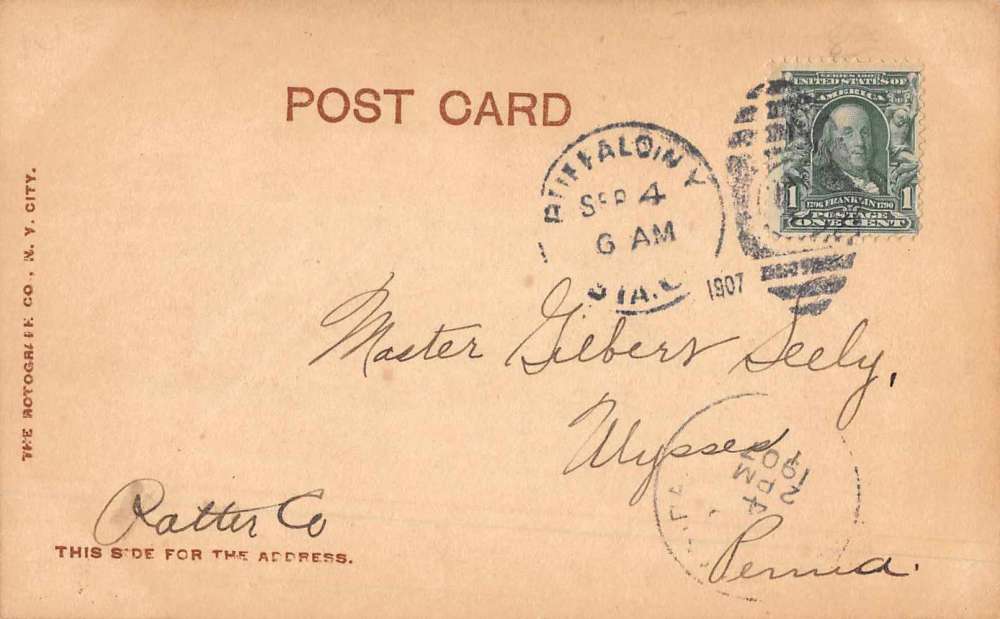 POST CARD
SERIES 1902
UNITED STATES OF
AMERICA
1 1
1706 FRANKLIN 1790
POSTAGE
ONE CENT
BUFFALO, N.Y.
SEP 4
6 AM
STA.
1907
Master Gilbert Seely,
Ulysses
Penna.
Potter Co
2 PM
1907
THE ROTOGRAPH CO., N. Y. CITY.
THIS SIDE FOR THE ADDRESS.